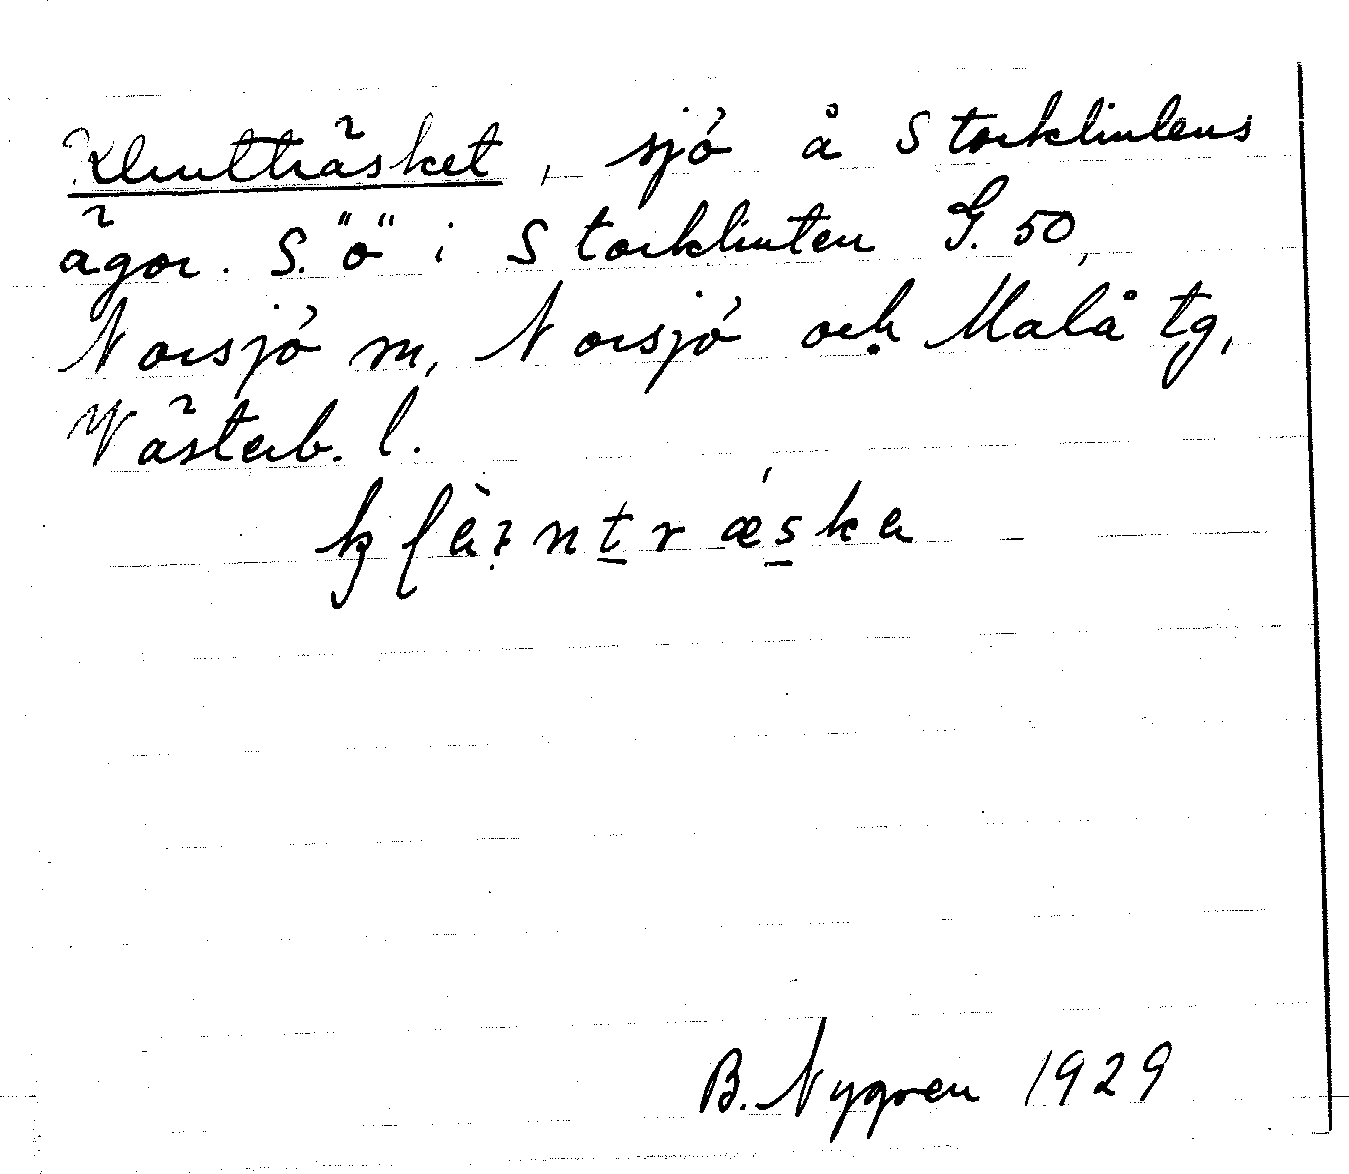 Klintträsket, sjö å Storklintens
ägor. S. "ö" i Storklinten G. 50,
Norsjö m, Norsjö och Malå tg,
Västerb. l.
B. Nygren 1929